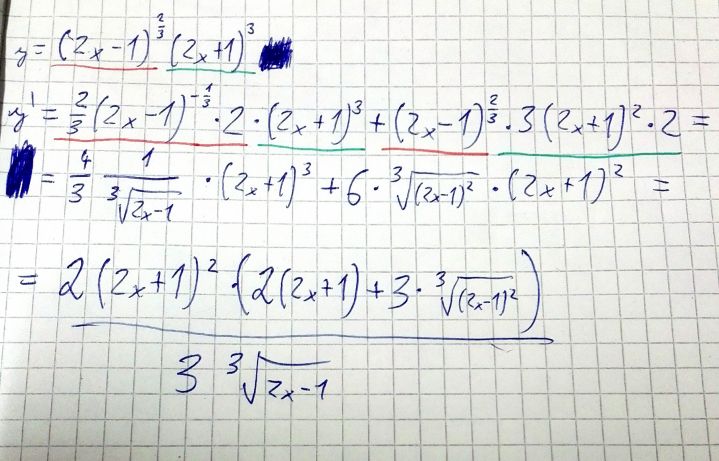 y = (2x-1)^{2/3} (2x+1)^3
y' = 2/3 (2x-1)^{-1/3} · 2 · (2x+1)^3 + (2x-1)^{2/3} · 3(2x+1)^2 · 2 =
= 4/3 1/∛(2x-1) · (2x+1)^3 + 6 · ∛((2x-1)^2) · (2x+1)^2 =
= 2(2x+1)^2 · (2(2x+1) + 3 · ∛((2x-1)^2))
3 ∛(2x-1)